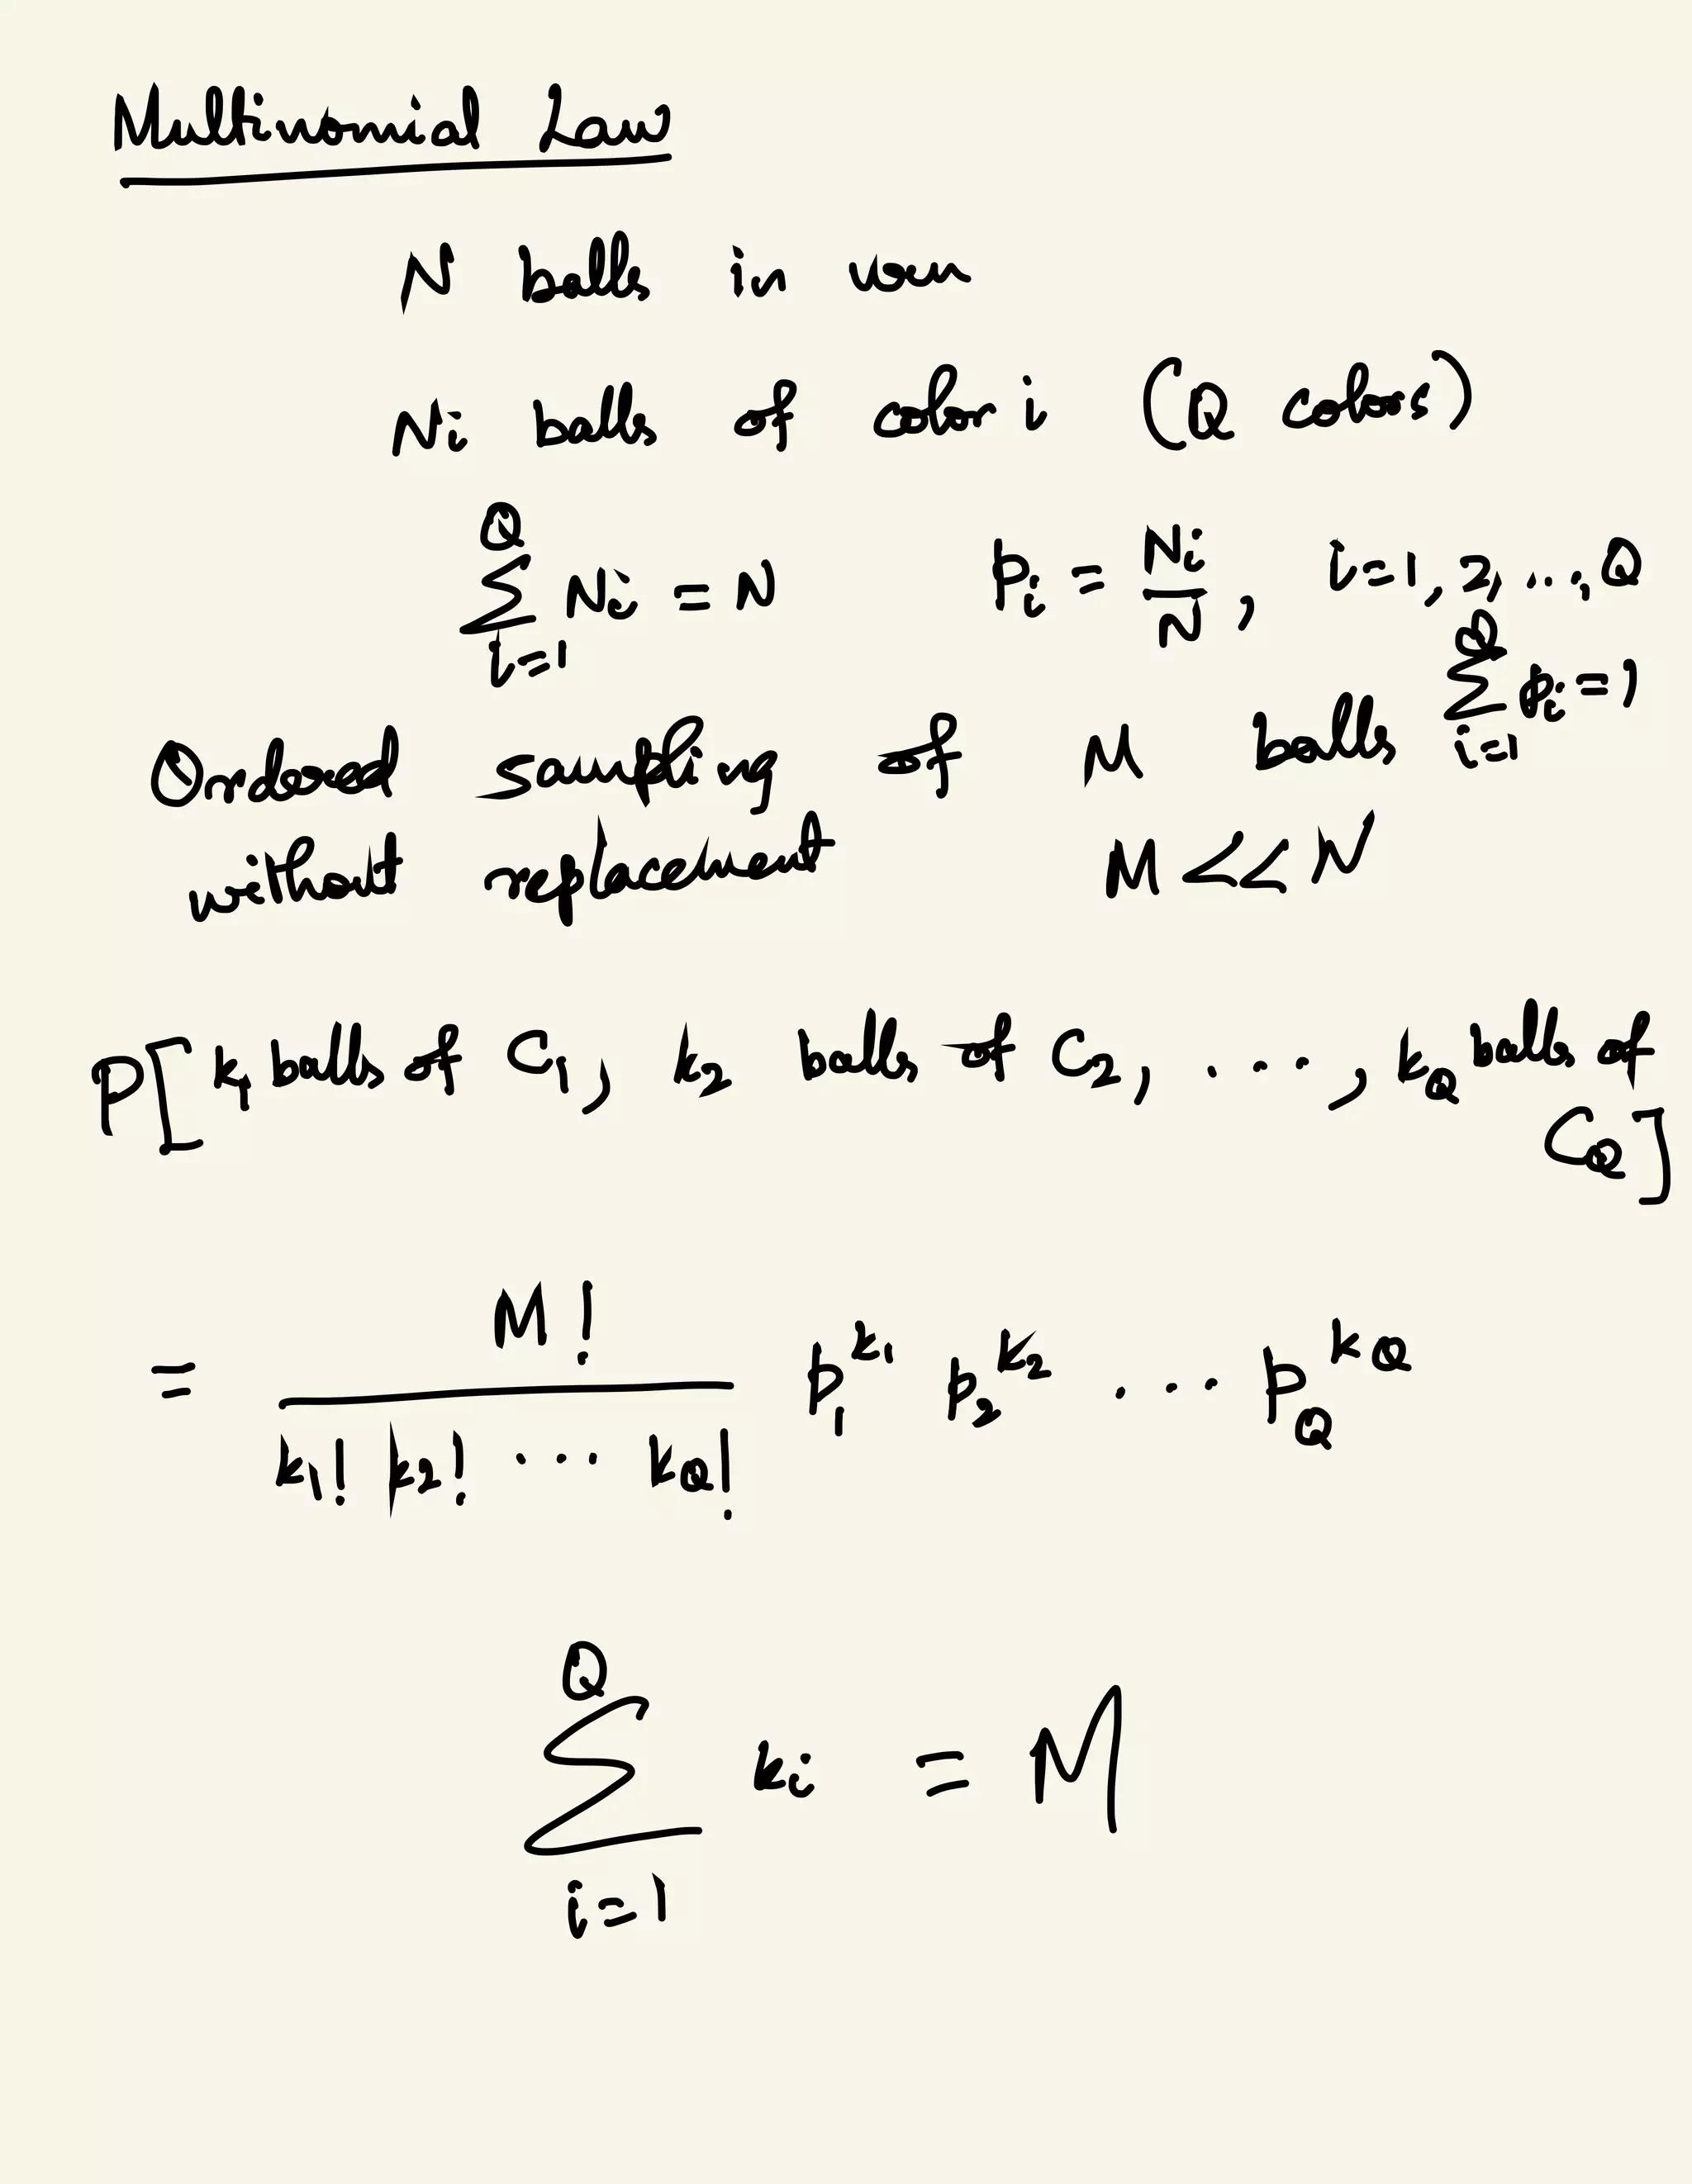 Multinomial Law
N balls in urn
Ni balls of color i (Q colors)
$\sum_{i=1}^{Q} N_i = N$ $p_i = \frac{N_i}{N}$, i=1, 2, ..., Q
$\sum_{i=1}^{Q} p_i = 1$
Ordered sampling of M balls
without replacement M << N
P[k₁ balls of C₁, k₂ balls of C₂, ..., k_Q balls of
C_Q]
$= \frac{M!}{k_1! \, k_2! \cdots k_Q!} \, p_1^{k_1} \, p_2^{k_2} \cdots p_Q^{k_Q}$
$\sum_{i=1}^{Q} k_i = M$